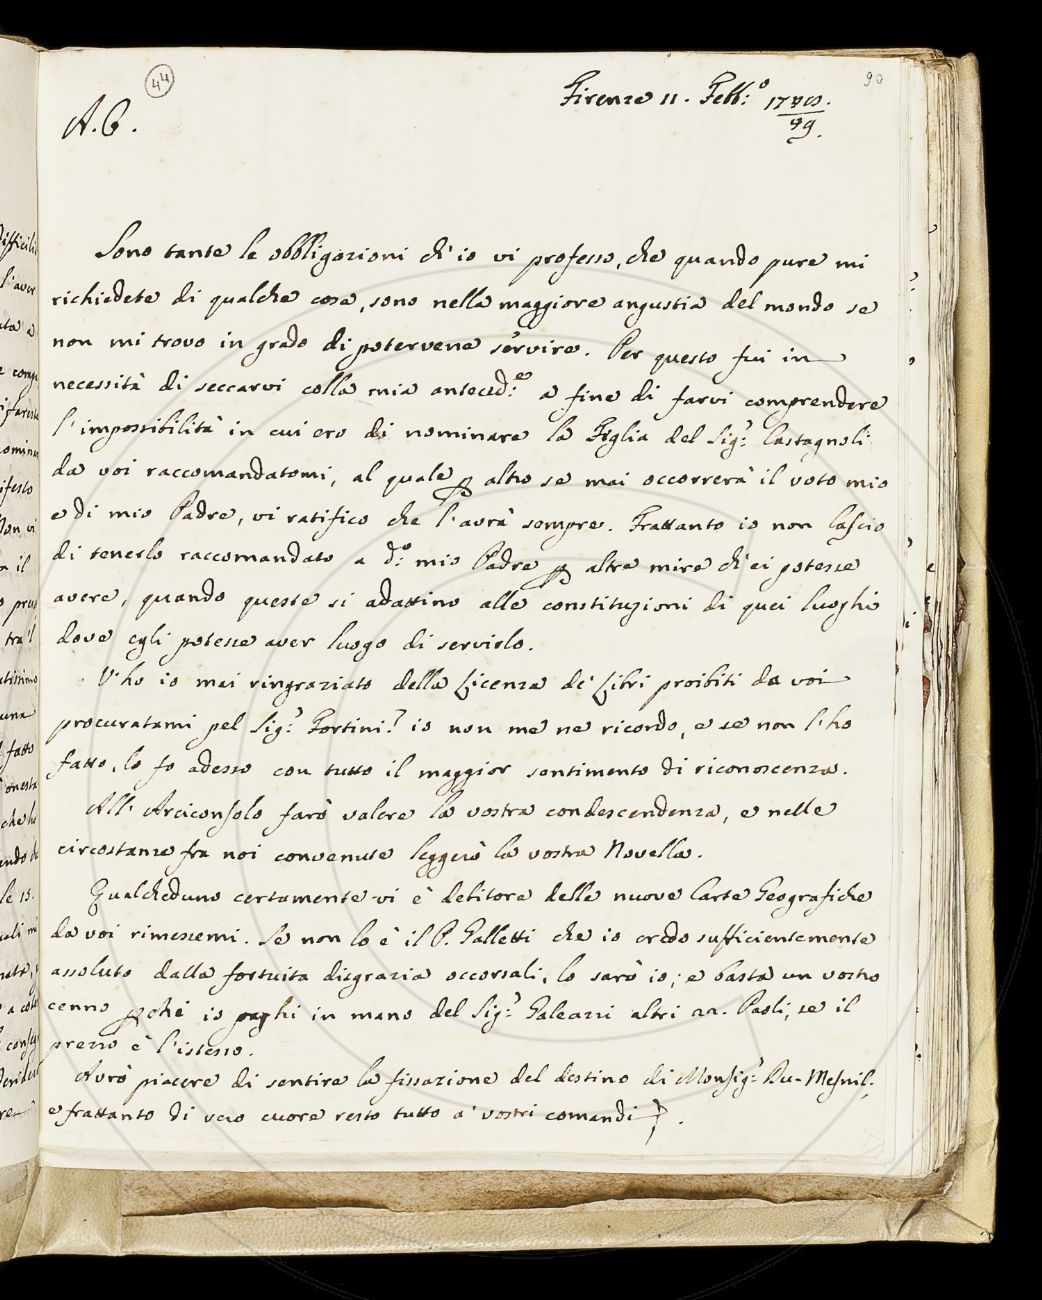 44
90
Firenze 11. Febb:º 1748.
49.
A. C.
Sono tante le obbligazioni ch'io vi professo, che quando pure mi
richiedete di qualche cosa, sono nella maggiore angustia del mondo se
non mi trovo in grado di potervene servire. Per questo fui in
necessità di seccarvi colla mia anteced:e a fine di farvi comprendere
l'impossibilità in cui ero di nominare la Figlia del Sig:r Castagnoli
da voi raccomandatomi, al quale p altro se mai occorrerà il voto mio
e di mio Padre, vi ratifico che l'avrà sempre. Frattanto io non lascio
di tenerlo raccomandato a d:o mio Padre p altre mire ch'ei potesse
avere, quando queste si adattino alle constituzioni di quei luoghi
dove egli potesse aver luogo di servirlo.
V'ho io mai ringraziato della Licenza de' Libri proibiti da voi
procuratami pel Sig:r Fortini? io non me ne ricordo, e se non l'ho
fatto, lo fo adesso con tutto il maggior sentimento di riconoscenza.
All' Arciconsolo farò valere la vostra condescendenza, e nelle
circostanze fra noi convenute leggerò la vostra Novella.
Qualcheduno certamente vi è debitore delle nuove Carte Geografiche
da voi rimessemi. Se non lo è il P. Galletti che io credo sufficientemente
assoluto dalla fortuita disgrazia occorsali, lo sarò io; e basta un vostro
cenno pchè io paghi in mano del Sig:r Galeazzi altri 22. Paoli, se il
prezzo è l'istesso.
Avrò piacere di sentire la fissazione del destino di Monsig:r Du-Mesnil;
e frattanto di vero cuore resto tutto a' vostri comandi.